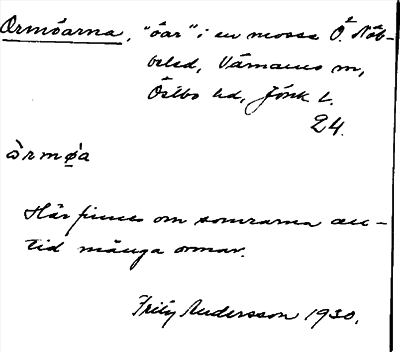 Ormöarna, "öar" i en mosse Ö. Näb-
belud, Värnamo sn,
Östbo hd, Jönk. l.
24.
òrmø̀a
Här finnes om somrarna all-
tid många ormar.
Fritz Andersson 1930.